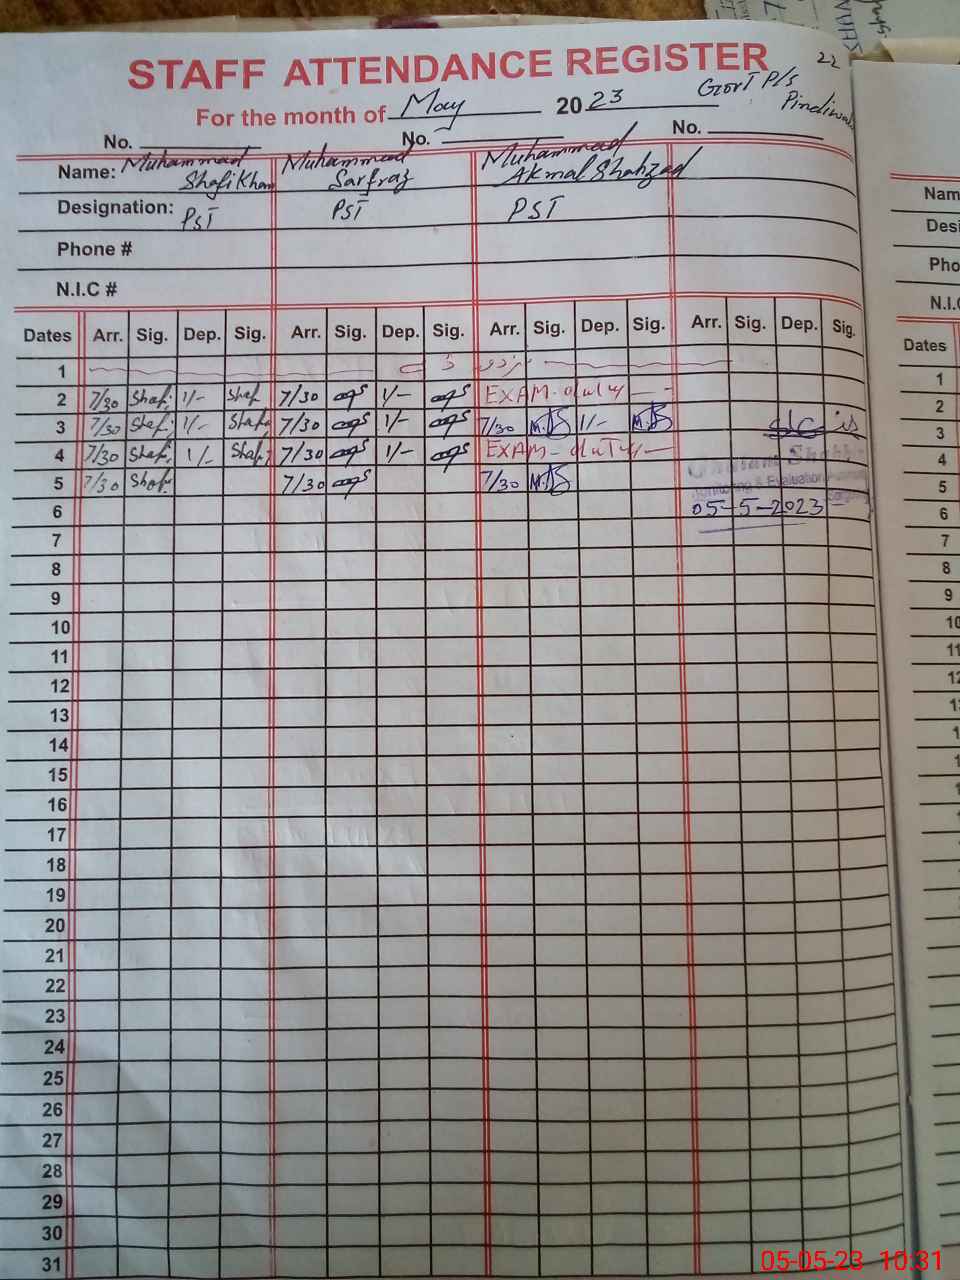 22
STAFF ATTENDANCE REGISTER
Govt P/S
For the month of May 2023
No. No. No.
Name: Muhammad Shafi Khan Muhammad Sarfraz Muhammad Akmal Shahzad
Designation: PST PST PST
Phone #
N.I.C #
Dates Arr. Sig. Dep. Sig. Arr. Sig. Dep. Sig. Arr. Sig. Dep. Sig. Arr. Sig. Dep. Sig.
1
2 7/30 Shafi 1/- Shafi 7/30 1/- EXAM. duty
3 7/30 Shafi 1/- Shafi 7/30 1/- 7/30 M.AS 1/- M.AS
4 7/30 Shafi 1/- Shafi 7/30 1/- EXAM- duty
5 7/30 Shafi 7/30 7/30 M.AS
Monitoring & Evaluation
6 05-5-2023
7
8
9
10
11
12
13
14
15
16
17
18
19
20
21
22
23
24
25
26
27
28
29
30
31
Nam
Desi
Pho
N.I.
Dates
1
2
3
4
5
6
7
8
9
10
11
12
05-05-23 10:31